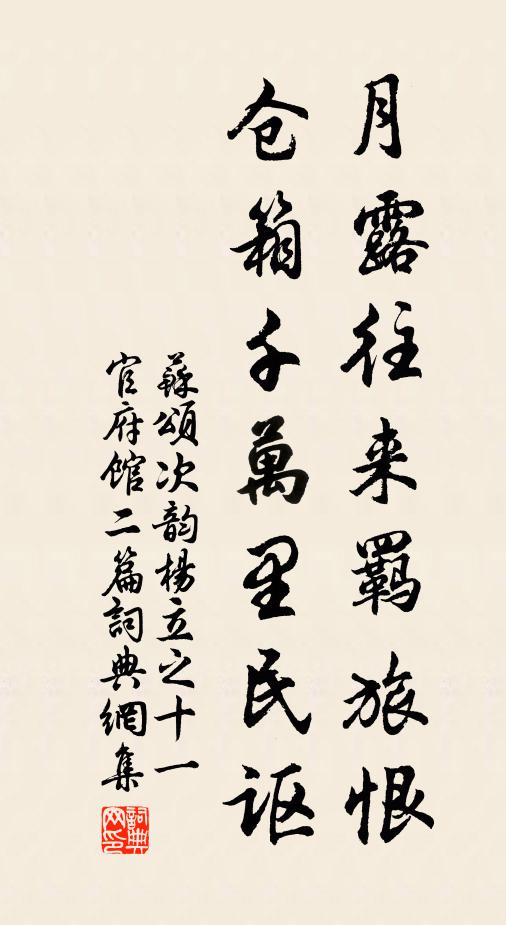 月露往来羁旅恨
仓箱千萬里民讴
蘇頌次韵楊立之十一
官府館二篇詞典網集
詞典网印